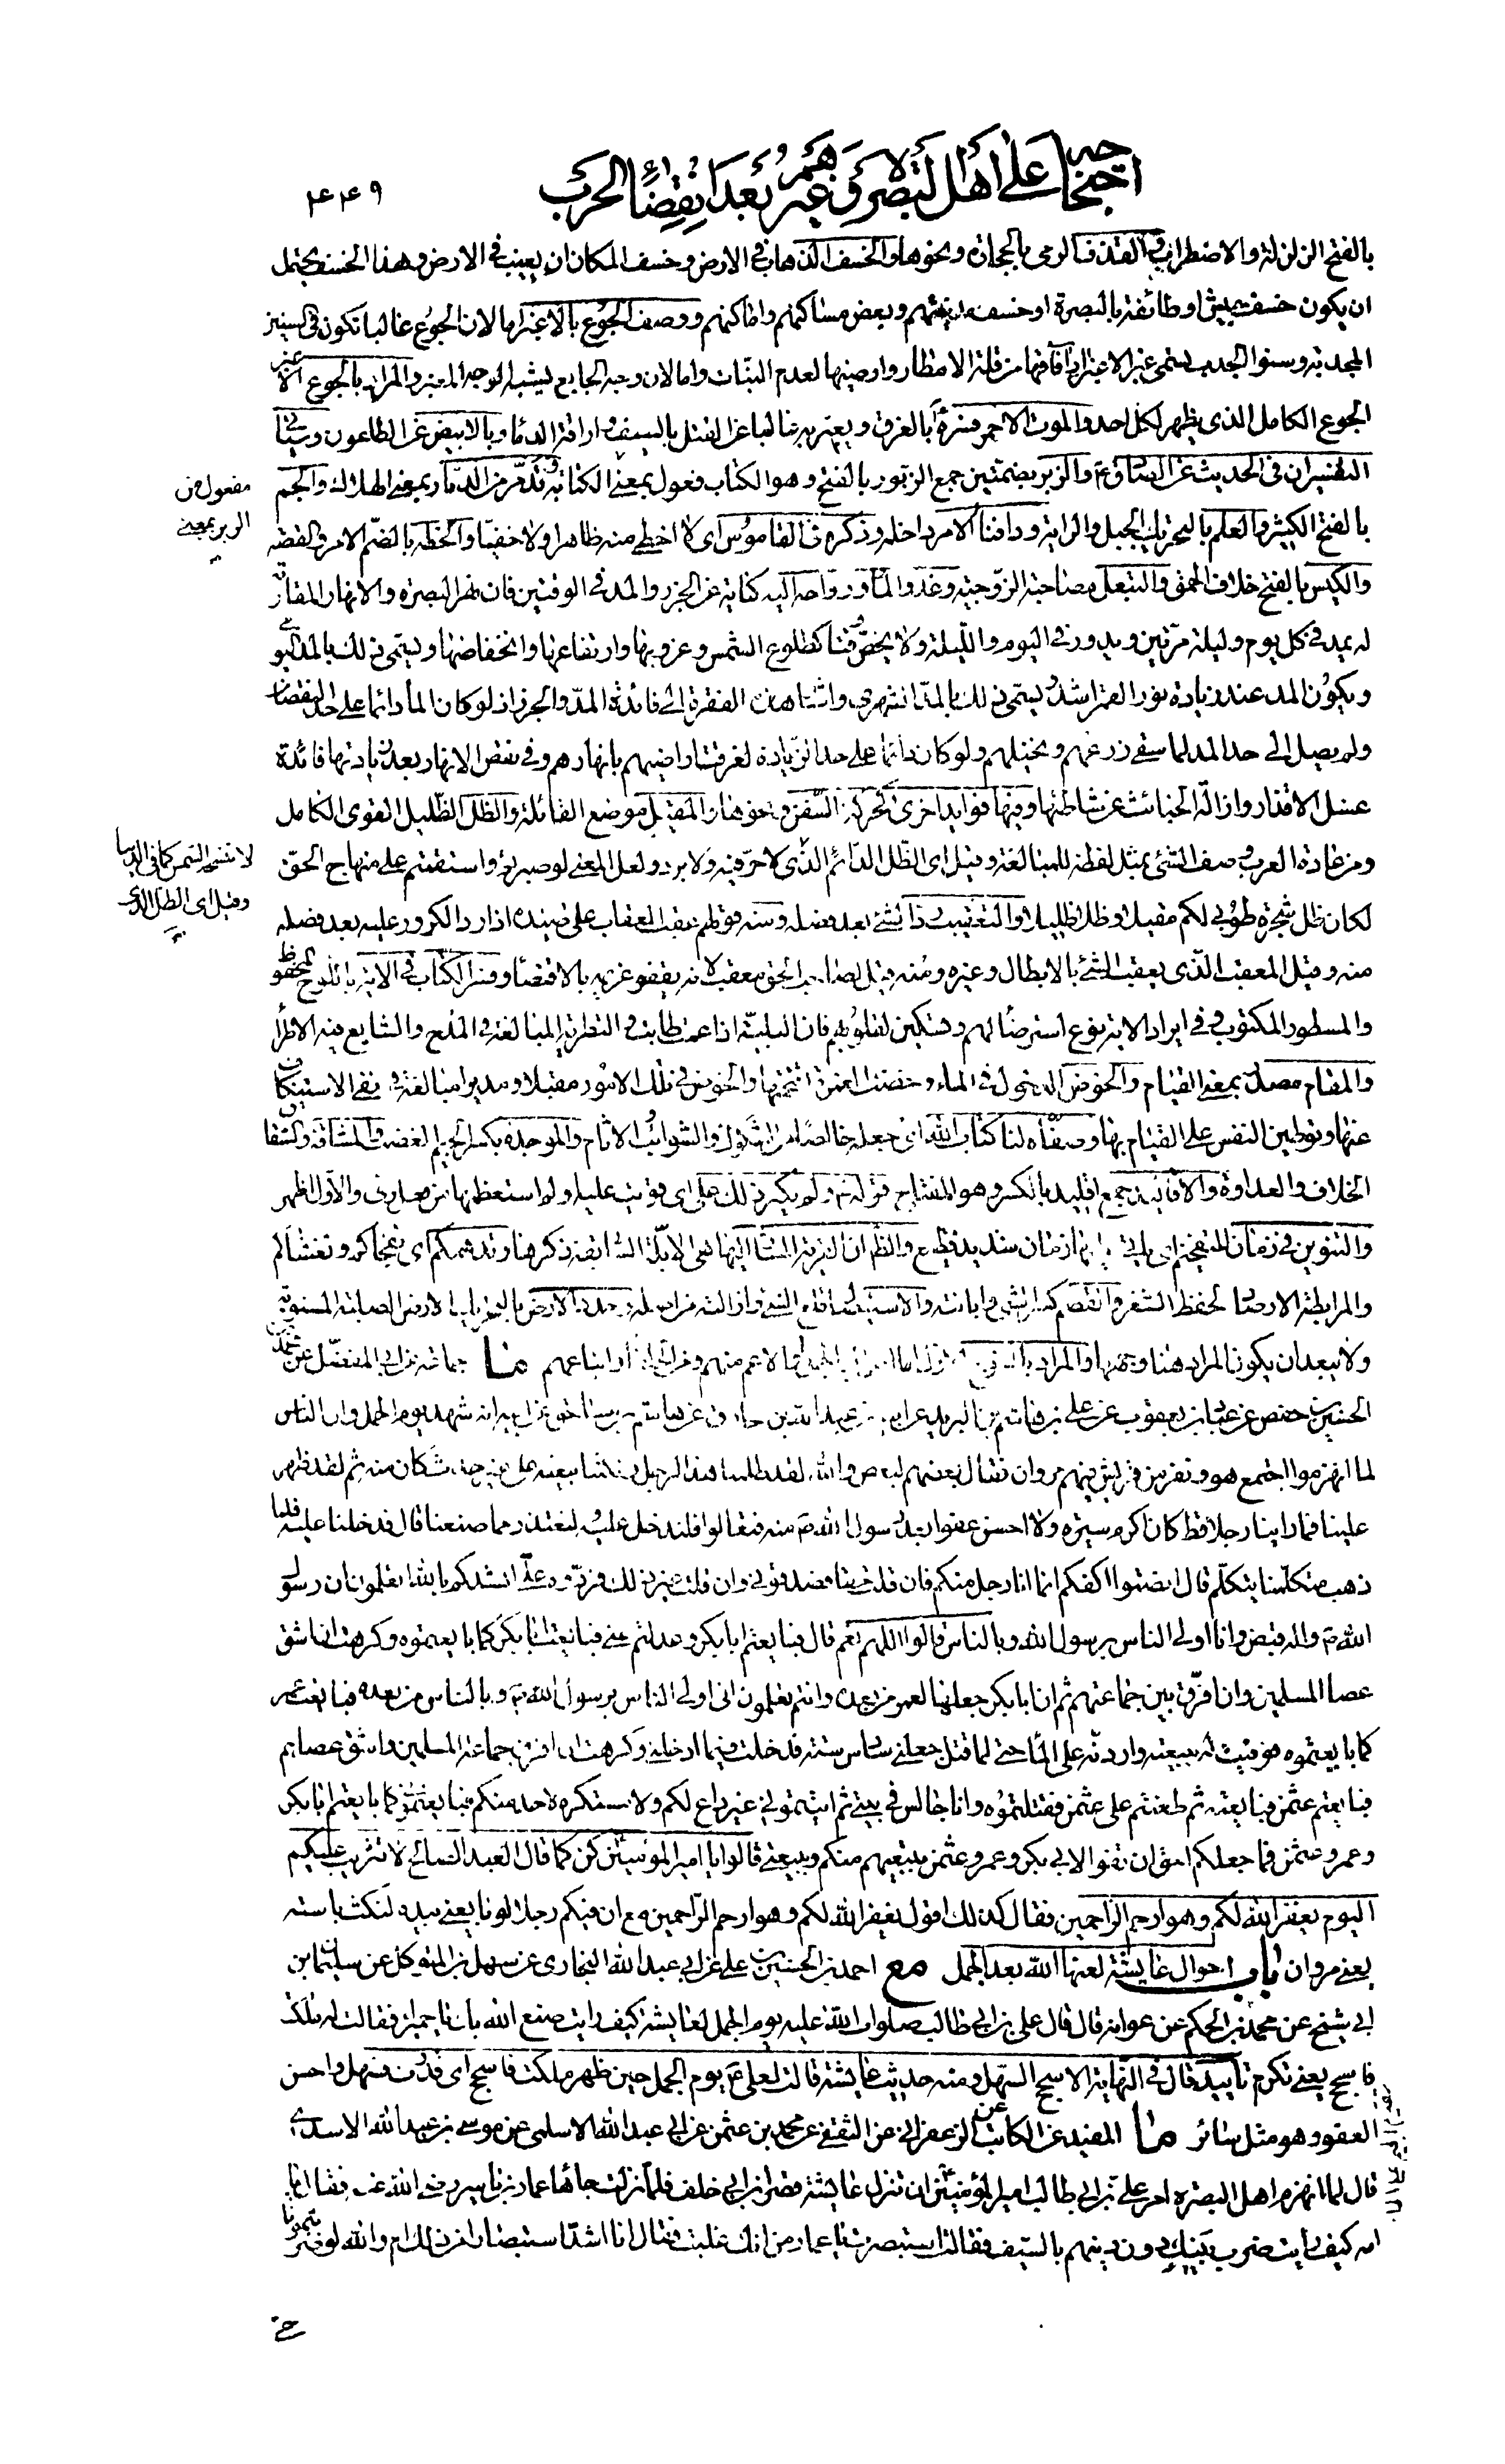 احتجاجه على أهل البصرة وغيرهم بعد انقضاء الحرب
۴۴۹
بالفتح الزلزلة والاضطراب والقذف الرمى بالحجارة ونحوها والخسف الذهاب فى الارض وخسف المكان ان يغيب فى الارض وهذا الخسف يحتمل
ان يكون خسف جيش او طائفة بالبصرة او خسف مدينتهم وبعض مساكنهم واماكنهم ووصف الجوع بالاغبر اما لان الجوع غالبا تكون فى السنين
المجدبة وسنوا الجدب يسمى غبر الاغبرار آفاقها من قلة الامطار وارضيها لعدم النبات واما لان وجه الجايع يشبه الوجه المغبر والمراد بالجوع الاغبر
الجوع الكامل الذى يظهر لكل احد والموت الاحمر فسره بالغرق ويعبر به غالبا عن القتل بالسيف واراقة الدماء وبالابيض عن الطاعون وسياتى
التفسيران فى الحديث عن الصادق ع والزبر بضمتين جمع الزبور بالفتح وهو الكتاب فعول بمعنى الكتابة وتدمر من الدمار بمعنى الهلاك والجم
مفعول من
الزبر بمعنى
بالفتح الكثير والعلم بالتحريك الجبل والراية ودافنا الامر داخله وذكره فى القاموس اى لا اخطى منه ظاهرا ولا خفيا والخطه بالضم الامر والقصه
والكيس بالفتح خلاف الحمق والتبعل مصاحبة الزوجية وغدو الماء ورواحه اليه كناية عن الجزر والمد فى الوقتين فان نهر البصرة والانهار المقارنة
له يمد فى كل يوم وليلة مرتين ويدور فى اليوم والليلة ولا يخص وقتا كطلوع الشمس وغروبها وارتفاعها وانخفاضها ويسمى ذلك بالمد اليومى
ويكون المد عند زيادة نور القمر اشد ويسمى ذلك بالمد الشهرى واشار هذه الفقرة الى فائدة المد والجزر اذ لو كان الماء دائما على حد النقصان
ولم يصل الى حد المد لما سقى زرعهم ونخيلهم ولو كان دائما على حد الزيادة لغرقت اراضيهم بانهارهم وفى نقص الانهار بعد زيادتها فائدة
غسل الاقذار وازالة الخبائث عن شاطئها وفيها فوايد اخرى كحركة السفن ونحوها والمقيل موضع القائلة والظل الظليل القوى الكامل
ومن عادة العرب وصف الشئ بمثل لفظه للمبالغة وقيل اى الظل الدائم الذى لا حر فيه ولا برد ولعل المعنى لو صبرتم واستقمتم على منهاج الحق
لا تنسخه الشمس كما فى الدنيا
وقيل اى الظل الذى
لكان ظل شجرة طوبى لكم مقيلا وظلا ظليلا والتعقيب رد الشئ بعد فصله ومنه قولهم عقب العقاب على صيده اذا رد الكرور عليه بعد فصله
منه وقيل المعقب الذى يعقب الشئ بالابطال وغيره ومنه قيل لصاحب الحق معقب لانه يقفو غريمه بالاقتضاء وفسر الكتاب فى الاية باللوح المحفوظ
والمسطور المكتوب وفى ايراد الاية نوع استرضاء لهم وتسكين لقلوبهم فان البلية اذا عمت طابت والتطرية المبالغة فى المدح والشايع فيه الاطراء
والمقام مصدر بمعنى القيام والخوض الدخول فى الماء وخضت الغمرة اقتحمتها والخوض فى تلك الامور مقبلا ومدبرا مبالغة فى نفى الاستنكاف
عنها وتوطين النفس على القيام بها وصفاه لنا كتاب الله اى جعله خالصا من الشكوك والشوائب والاثام والموجدة بكسر الجيم الغضب والمشاقة والشقاق
الخلاف والعداوة والاقاليد جمع اقليد بالكسر وهو المفتاح قوله ع ولم يكبر ذلك على اى قويت عليه ولم استعظمها من معارفى والاول اظهر
والتنوين فى زمان للتفخيم اى ياتى زمان شديد فظيع والظ ان القرية المشار اليها هى الابلة السابقة ذكرها وتدهمكم اى تفجاكم وتغشاكم
والمرابطة الارصاد لحفظ الثغر وقصم كضرب ابانته والاستيصال قلع الشئ وازالته من اصله الارض بالتحريك الارض الصلبة المستوية
ولا يبعد ان يكون المراد هنا والمراد لاعم منهم ومن اتباعهم ما جماعة عن ابى المفضل عن محمد بن
الحسين بن حفص عن عباد بن يعقوب عن على بن هاشم بن البريد عن ابيه عن عبد الله بن مخارق عن هاشم بن مساحق عن ابيه انه شهد يوم الجمل وان الناس
لما انهزموا اجتمع هو ونفر من قريش فيهم مروان فقال بعضهم لبعض والله لقد ظلمنا هذا الرجل ونكثنا بيعته على غير حدث كان منه ثم لقد ظهر
علينا فما راينا رجلا قط كان اكرم سيرة ولا احسن عفوا بعد رسول الله ص منه فتعالوا فلندخل عليه ولنعتذر مما صنعنا قال فدخلنا عليه فلما
ذهب متكلمنا يتكلم قال انصتوا اكفكم انما انا رجل منكم فان قلت حقا فصدقونى وان قلت غير ذلك فردوه على انشدكم بالله اتعلمون ان رسول
الله ص واله قبض وانا اولى الناس برسول الله وبالناس قالوا اللهم نعم قال فبايعتم ابا بكر وعدلتم عنى فبايعت ابا بكر كما بايعتموه وكرهت ان اشق
عصا المسلمين وان افرق بين جماعتهم ثم ان ابا بكر جعلها لعمر من بعده وانتم تعلمون انى اولى الناس برسول الله ص وبالناس من بعده فبايعت عمر
كما بايعتموه فوفيت له ببيعته واردته على الماء حتى لما قتل جعلنى سادس ستة فدخلت فيما ادخلنى وكرهت ان افرق جماعة المسلمين واشق عصاهم
فبايعتم عثمن فبايعته ثم طعنتم على عثمن فقتلتموه وانا جالس فى بيتى ثم اتيتمونى غير داع لكم ولا مستكره لاحد منكم فبايعتمونى كما بايعتم ابا بكر
وعمر وعثمن فما جعلكم احق ان تفوا لابى بكر وعمر وعثمن ببيعتهم منكم ببيعتى قالوا يا امير المؤمنين كن كما قال العبد الصالح لا تثريب عليكم
اليوم يغفر الله لكم وهو ارحم الراحمين فقال كذلك اقول يغفر الله لكم وهو ارحم الراحمين مع ان فيكم رجلا لو بايعنى بيده لنكث باسته
يعنى مروان باب احوال عايشة لعنها الله بعد الجمل مع احمد بن الحسين بن على عن ابى عبد الله البخارى عن سهل بن المتوكل عن سليمان بن
ابى شيخ عن محمد بن الحكم عن عوانة قال قال على بن ابى طالب صلوات الله عليه يوم الجمل لعايشة كيف رايت صنع الله بك يا حميرا فقالت له ملكت
فاسجح يعنى تكرم تاييد قال فى النهاية الاسجح السهل ومنه حديث عايشة قالت لعلى ع يوم الجمل حين ظهر ملكت فاسجح اى قدرت فسهل واحسن
العفو وهو مثل سائر ما المفيد عن الكاتب عن الزعفرانى عن الثقفى عن محمد بن عثمن عن ابى عبد الله الاسلمى عن موسى بن عبد الله الاسدى
قال لما انهزم اهل البصرة امر على بن ابى طالب امير المؤمنين ان تنزل عايشة قصر ابن ابى خلف فلما نزلت جاءها عمار بن ياسر رضى الله عنه فقال يا
امه كيف رايت ضرب بنيك دون دينهم بالسيف فقالت استبصرت يا عمار من انك غلبت فقال انا اشد استبصارا من ذلك ام والله لو ضربتمونا
حتى